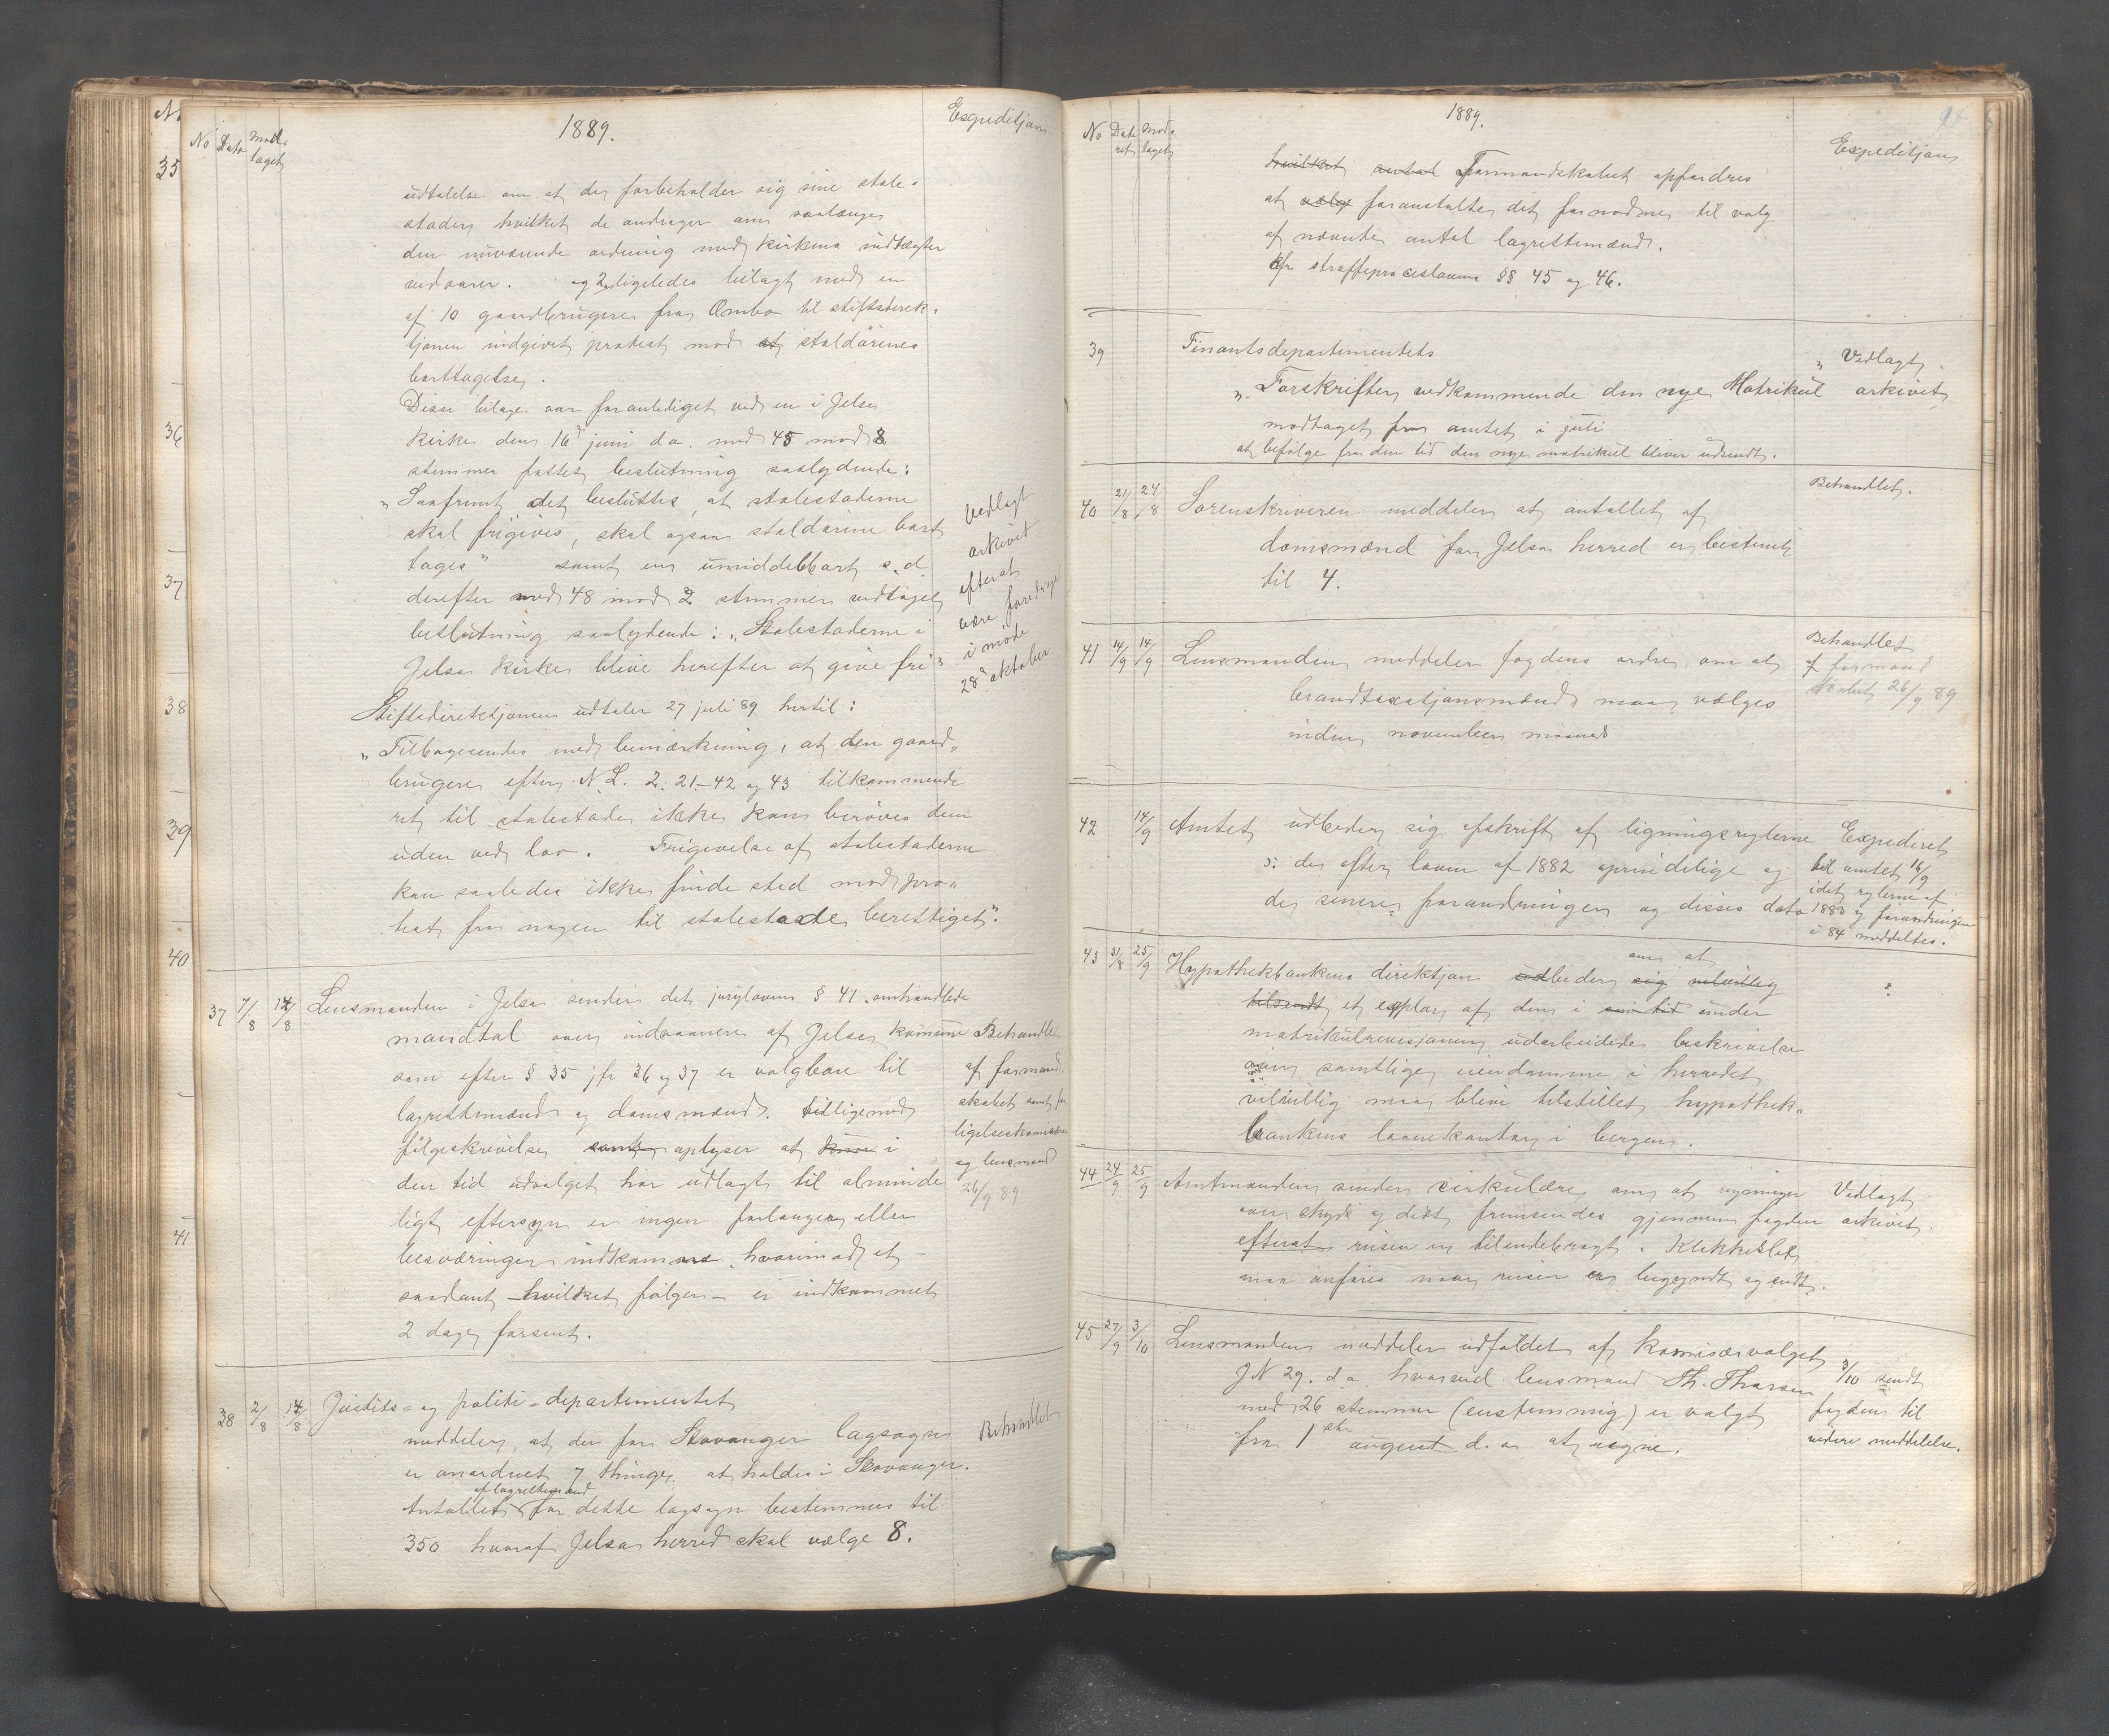 No Dato Mod-
taget
1889.
Expeditjon
udtalelse om at de forbeholder sig sine stole-
stader hvilket de andrager om saalænge
den nuværende ordning med kirkens indtægter
vedvarer. og 2 ligeledes bilagt med en
af 10 gaardbrugere fra Ombo til stiftsdirek-
tjonen indgivet protest mod at stoldörenes
borttagelse.
Disse bilage var foranlediget ved en i Jelse
kirke den 16de juni d.a. med 45 mod 8
stemmer fattet beslutning saalydende:
"Saafremt det besluttes, at stolestaderne
skal frigives, skal ogsaa stoldörene bort
tages" samt en umiddelbart s.d.
derefter med 48 mod 2 stemmer vedtaget
beslutning saalydende: "Stolestaderne i
Jelse kirke blive herefter at give fri"
Vedlagt
arkivet
efterat
være foredraget
i möde
28de oktober
Stiftsdirektjonen udtaler 27 juli 89 hertil:
"Tilbagesendes med bemærkning, at den gaard-
brugere efter N.L. 2.21-42 og 43 tilkommende
ret til stolestade ikke kan beröves dem
uden ved lov. Frigivelse af stolestaderne
kan saaledes ikke finde sted mod pro-
test fra nogen til stolestade berettiget".
37 7/8 14/8 Lensmanden i Jelse sender det jurylovens § 41 omhandlede
mandtal over indvaanere af Jelse komune
som efter § 35 jfr 36 og 37 er valgbare til
lagrettemænd og domsmænd. tilligemed
fölgeskrivelse samt oplyser at i
den tid udvalget har udlagt til alminde
ligt eftersyn er ingen forlangen eller
besværinger indkomne. hvorimod et
saadant - hvilket fölger - er indkommet
2 dage forsent.
Behandlet
af formand-
skabet samt for
ligelseskomissær
og lensmand
26/9 89
38 2/8 14/8 Justits- og politi-departementet
meddeler, at der for Stavanger lagsogn
er anordnet 7 thinge at holdes i Stavanger.
af lagrettemænd
Antallet for dette lagsogn bestemmes til
350 hvoraf Jelse herred skal vælge 8.
Behandlet
No
35
36
37
38
39
40
41
No Date
ret Mod-
taget
1889.
Expeditjon
hvilket antal Formandskabet opfordres
at vælge foranstalte det fornödne til valg
af nævnte antal lagrettemænd.
Cfr straffeproceslovens §§ 45 og 46.
39 Finantsdepartementets
"Forskrifter vedkommende den nye Matrikul
modtaget fra amtet i juli
at befölge fra den tid den nye matrikul bliver udsendt.
Vedlagt
arkivet
40 21/8 24/8 Sorenskriveren meddeler at antallet af
domsmænd for Jelse herred er bestemt
til 4.
Behandlet.
41 14/9 14/9 Lensmanden meddeler fogdens ordre om at
brandtaxatjonsmænd maa vælges
inden november maaned
Behandlet
af formand
skabet 26/9 89
42 14/9 Amtet udbeder sig afskrift af ligningsreglerne
ɔ: de efter loven af 1882 oprindelige og
de senere forandringer og disses dato
Expederet
til amtet 16/9
idet reglerne af
1883 og forandringen
i 84 meddeltes.
43 31/8 25/9 Hypothekbankens direktjon udbeder sig velvillig om at
tilsendt et explar af den i sin tid under
matrikulrevisjonen udarbeidede beskrivelse
over samtlige eiendomme i herredet
velvillig maa blive tilstillet hypothek-
bankens laanekontor i bergen.
44 24/9 25/9 Amtmanden sender cirkulære om at regninger
over skyds og diæt fremsendes gjennem fogden
efterat reisen er tilendebragt. Klokkeslet
maa anföres naar reisen er begyndt og endt.
Vedlagt
arkivet.
45 27/9 3/10 Lensmanden meddeler udfaldet af komisærvalget
JN 29. d.a. hvorved lensmand Th. Thorsen
med 26 stemmer (enstemmig) er valgt
fra 1ste august d.a. at regne.
3/10 sendt
fogden til
videre meddelelse.